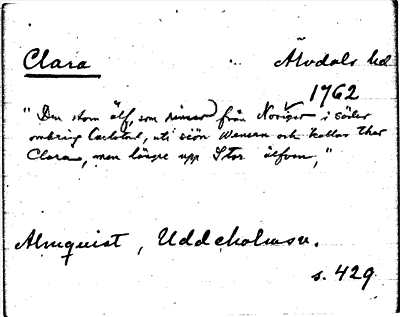 Clara Älvdals hd
1762
"Den stora älf, som rinner från Noriget i söder
omkring Carlstad, uti siön Wenern och kallas ther
Clara, men längre upp Stor älfven,"
Almquist, Uddeholmsv.
s. 429